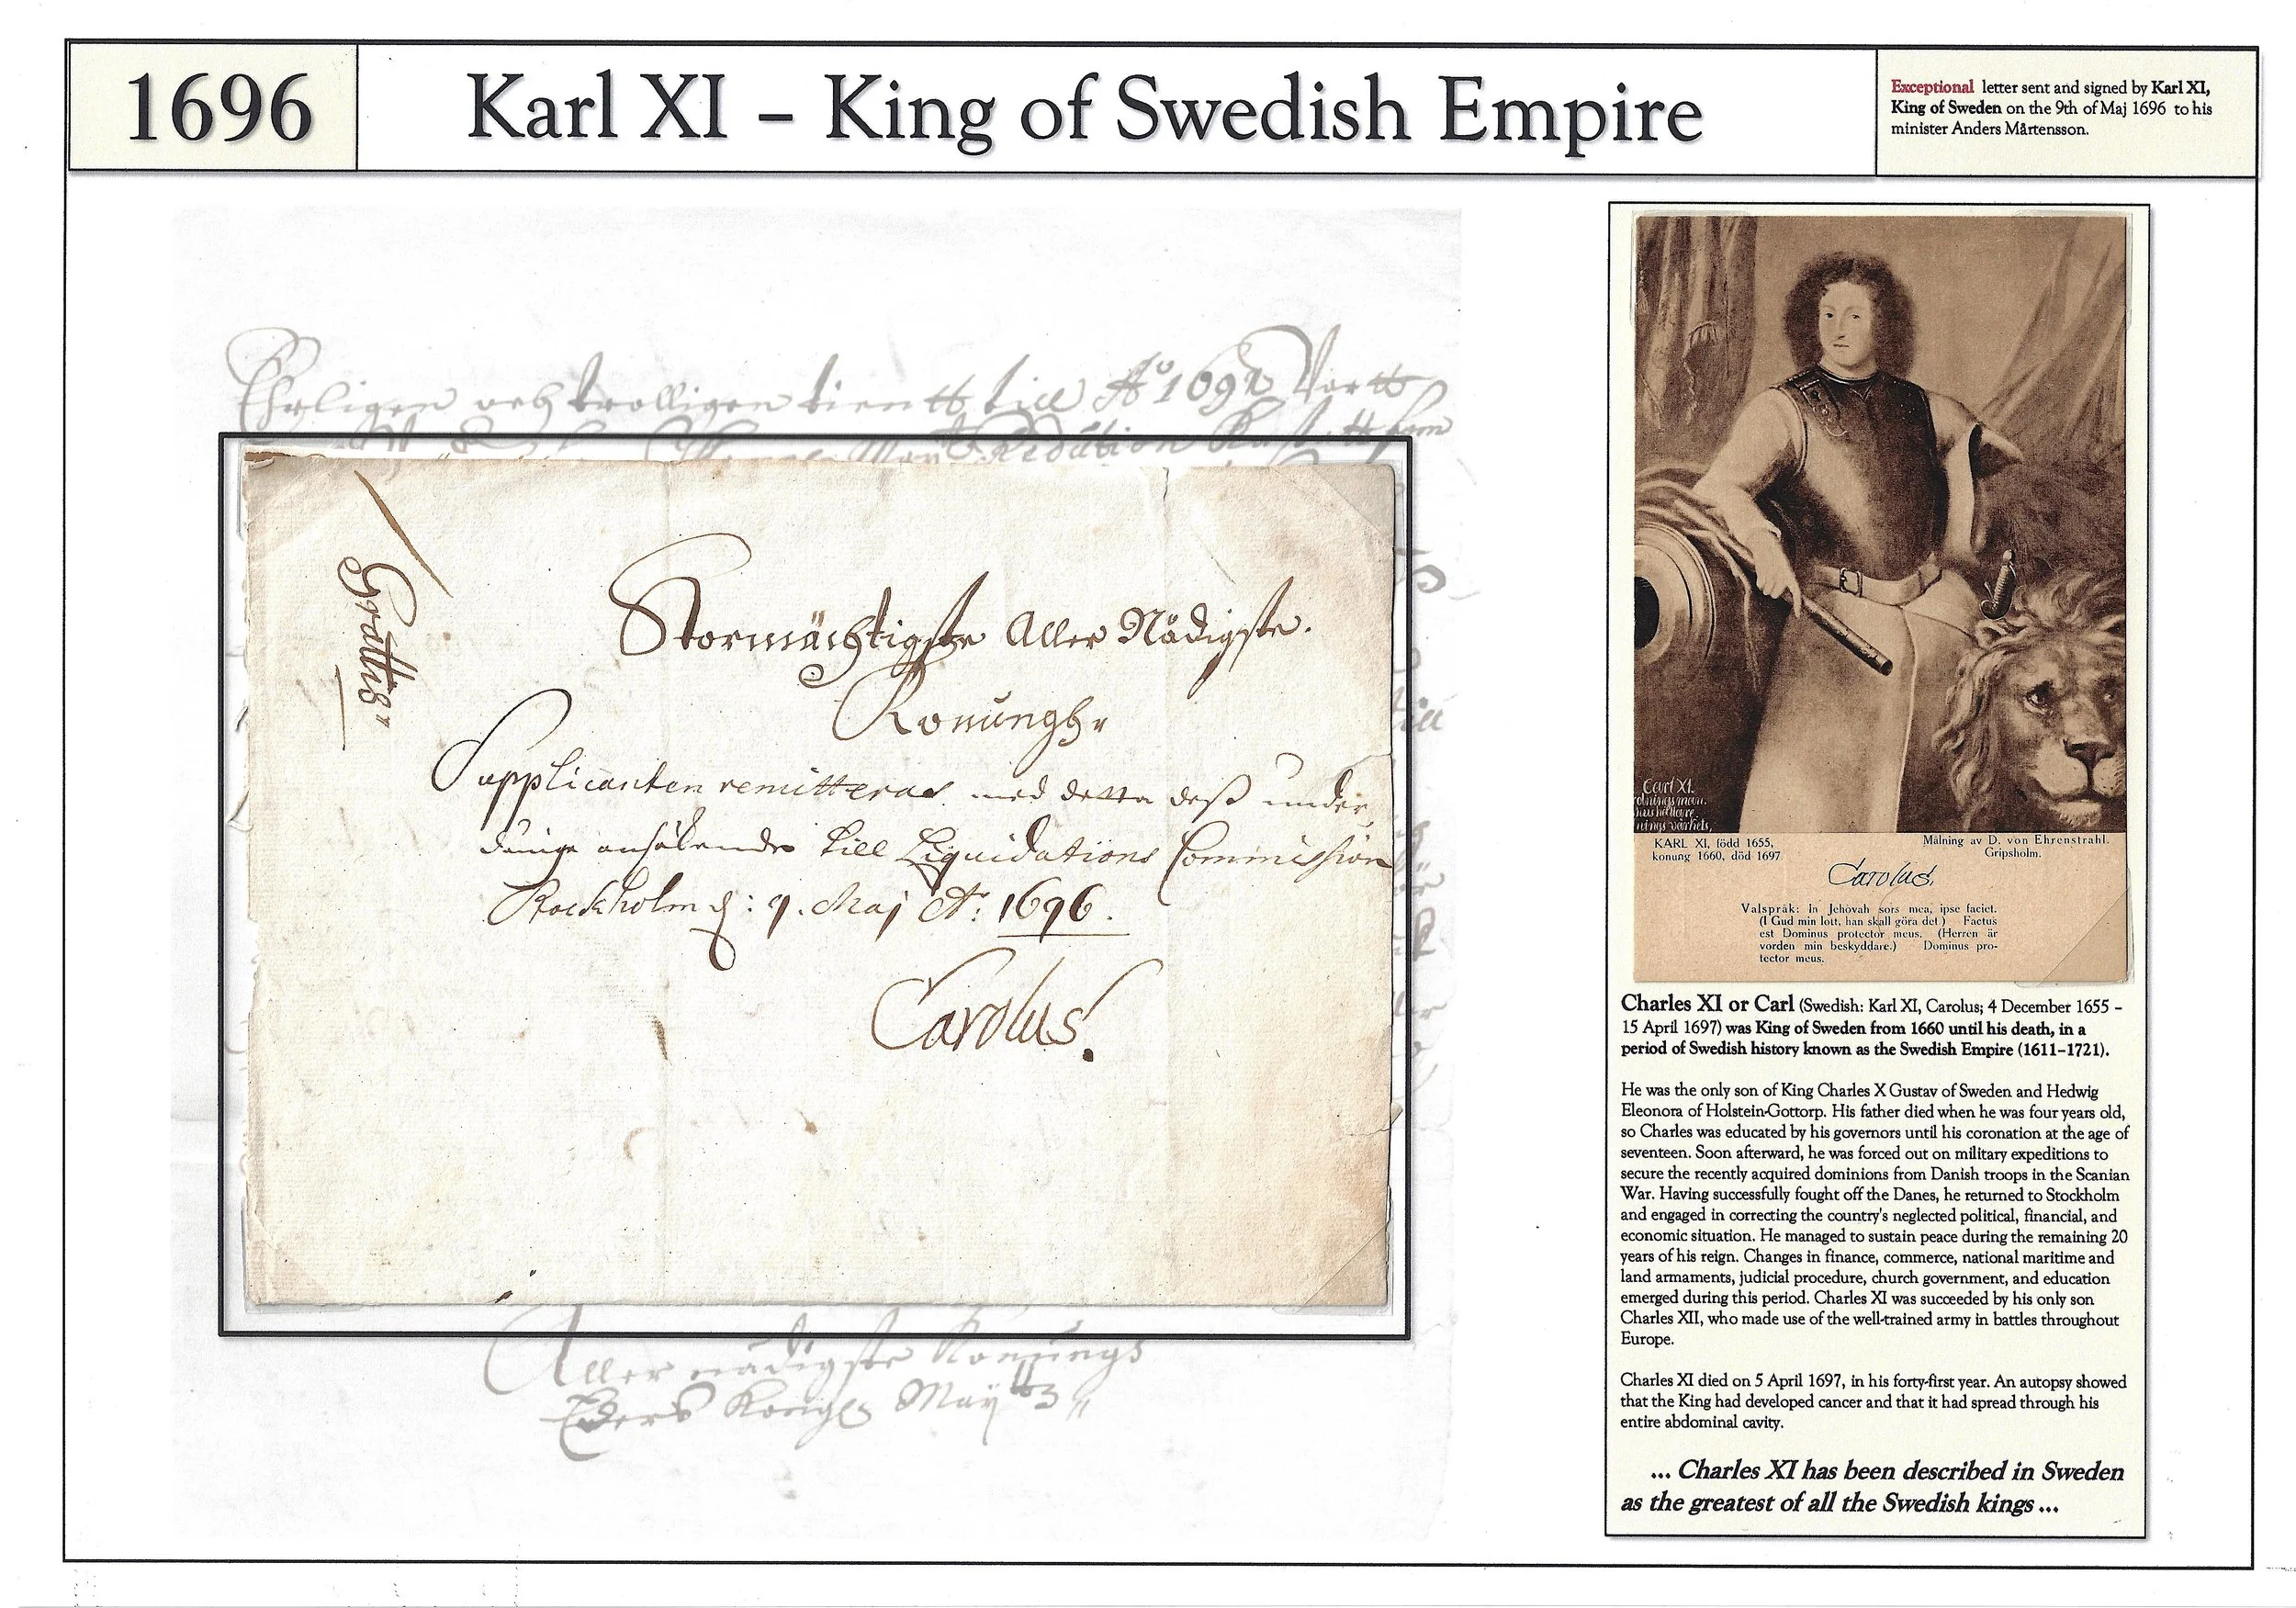 1696
Karl XI – King of Swedish Empire
Exceptional letter sent and signed by Karl XI,
King of Sweden on the 9th of Maj 1696 to his
minister Anders Mårtensson.
Ehrligen och trolligen tientt till Ao 1692
Reduction
Grattis
Stormächtigste Aller Nådigste.
Konungh
Supplicanten remitteras med detta dess under,
dånige ansökende till Liquidations Commission
Stockholm d: 9. Maj Ao: 1696.
Carolus.
Aller nådigste Konungs
Eders Kongl May tts
Carl XI.
KARL XI, född 1655,
konung 1660, död 1697
Målning av D. von Ehrenstrahl.
Gripsholm.
Carolus.
Valspråk: In Jehovah sors mea, ipse faciet.
(I Gud min lott, han skall göra det.) Factus
est Dominus protector meus. (Herren är
vorden min beskyddare.) Dominus pro-
tector meus.
Charles XI or Carl (Swedish: Karl XI, Carolus; 4 December 1655 –
15 April 1697) was King of Sweden from 1660 until his death, in a
period of Swedish history known as the Swedish Empire (1611–1721).
He was the only son of King Charles X Gustav of Sweden and Hedwig
Eleonora of Holstein-Gottorp. His father died when he was four years old,
so Charles was educated by his governors until his coronation at the age of
seventeen. Soon afterward, he was forced out on military expeditions to
secure the recently acquired dominions from Danish troops in the Scanian
War. Having successfully fought off the Danes, he returned to Stockholm
and engaged in correcting the country's neglected political, financial, and
economic situation. He managed to sustain peace during the remaining 20
years of his reign. Changes in finance, commerce, national maritime and
land armaments, judicial procedure, church government, and education
emerged during this period. Charles XI was succeeded by his only son
Charles XII, who made use of the well-trained army in battles throughout
Europe.
Charles XI died on 5 April 1697, in his forty-first year. An autopsy showed
that the King had developed cancer and that it had spread through his
entire abdominal cavity.
... Charles XI has been described in Sweden
as the greatest of all the Swedish kings ...